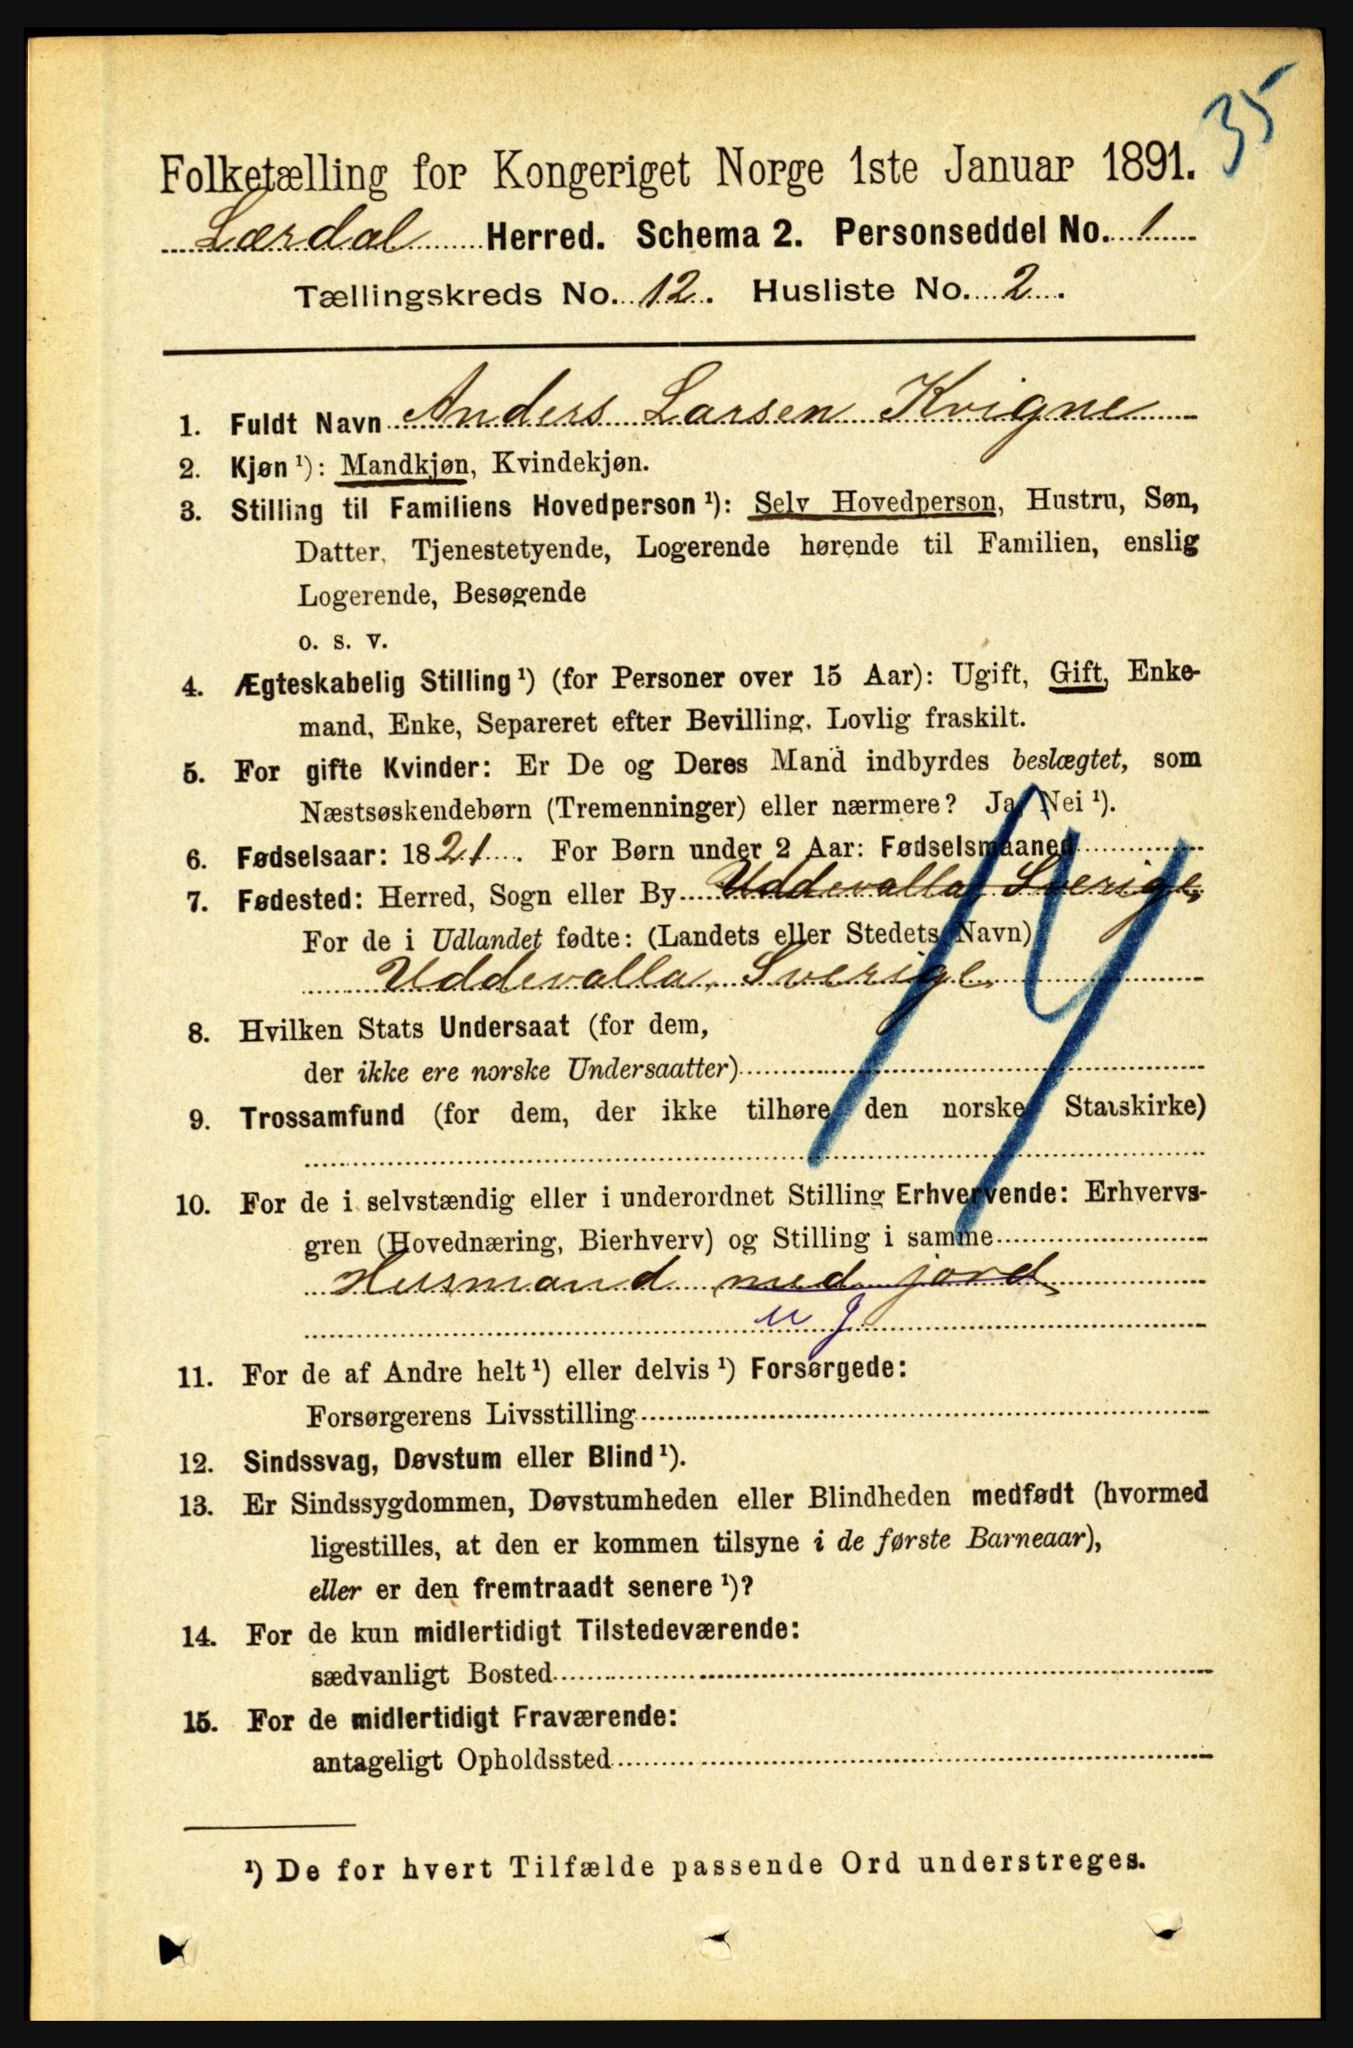 35
Folketælling for Kongeriget Norge 1ste Januar 1891.
Lærdal Herred. Schema 2. Personseddel No. 1
Tællingskreds No. 12. Husliste No. 2.
1. Fuldt Navn Anders Larsen Kvigne
2. Kjøn ¹): Mandkjøn, Kvindekjøn.
3. Stilling til Familiens Hovedperson ¹): Selv Hovedperson, Hustru, Søn,
Datter, Tjenestetyende, Logerende hørende til Familien, enslig
Logerende, Besøgende
o. s. v.
4. Ægteskabelig Stilling ¹) (for Personer over 15 Aar): Ugift, Gift, Enke-
mand, Enke, Separeret efter Bevilling, Lovlig fraskilt.
5. For gifte Kvinder: Er De og Deres Mand indbyrdes beslægtet, som
Næstsøskendebørn (Tremenninger) eller nærmere? Ja, Nei ¹).
6. Fødselsaar: 1821. For Børn under 2 Aar: Fødselsmaaned
7. Fødested: Herred, Sogn eller By Uddevalla Sverige
For de i Udlandet fødte: (Landets eller Stedets Navn)
Uddevalla, Sverige
8. Hvilken Stats Undersaat (for dem,
der ikke ere norske Undersaatter)
9. Trossamfund (for dem, der ikke tilhøre den norske Statskirke)
10. For de i selvstændig eller i underordnet Stilling Erhvervende: Erhvervs-
gren (Hovednæring, Bierhverv) og Stilling i samme
Husmand med jord
u J
11. For de af Andre helt ¹) eller delvis ¹) Forsørgede:
Forsørgerens Livsstilling
12. Sindssvag, Døvstum eller Blind ¹).
13. Er Sindssygdommen, Døvstumheden eller Blindheden medfødt (hvormed
ligestilles, at den er kommen tilsyne i de første Barneaar),
eller er den fremtraadt senere ¹)?
14. For de kun midlertidigt Tilstedeværende:
sædvanligt Bosted
15. For de midlertidigt Fraværende:
antageligt Opholdssted
¹) De for hvert Tilfælde passende Ord understreges.